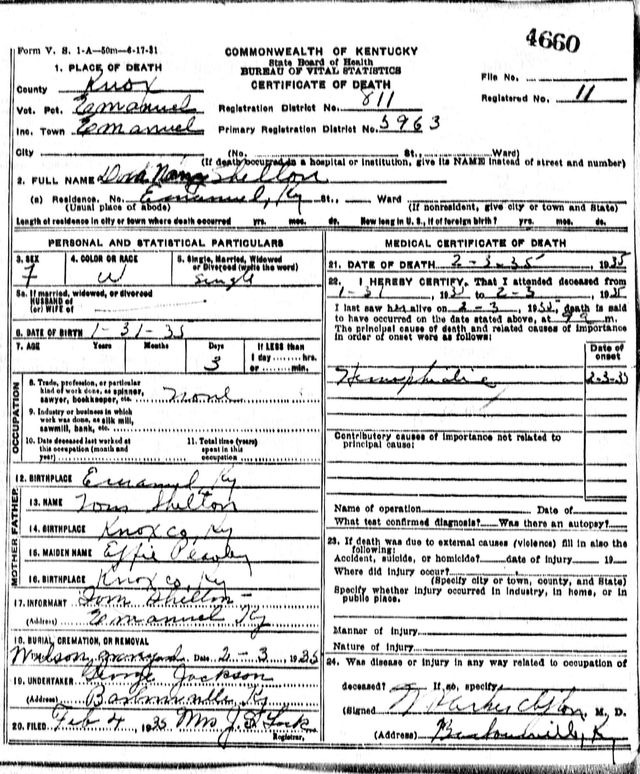 4660
Form V. S. 1-A—50m—6-17-31
COMMONWEALTH OF KENTUCKY
State Board of Health
BUREAU OF VITAL STATISTICS
CERTIFICATE OF DEATH
File No.
Registered No. 11
1. PLACE OF DEATH
County Knox
Vot. Pct. Emanuel
Inc. Town Emanuel
Registration District No. 811
Primary Registration District No. 5963
City (No. St., Ward)
(If death occurred in a hospital or institution, give its NAME instead of street and number)
2. FULL NAME Dora Nancy Shelton
(a) Residence. No. Emanuel, Ky St., Ward
(Usual place of abode) (If nonresident, give city or town and State)
Length of residence in city or town where death occurred yrs. mos. ds. How long in U. S., if of foreign birth? yrs. mos. ds.
PERSONAL AND STATISTICAL PARTICULARS
3. SEX F
4. COLOR OR RACE W
5. Single, Married, Widowed or Divorced (write the word) Single
5a. If married, widowed, or divorced
HUSBAND of
(or) WIFE of
6. DATE OF BIRTH 1-31-35
7. AGE Years Months Days 3 If LESS than
1 day hrs.
or min.
OCCUPATION
8. Trade, profession, or particular
kind of work done, as spinner,
sawyer, bookkeeper, etc. None
9. Industry or business in which
work was done, as silk mill,
sawmill, bank, etc.
10. Date deceased last worked at
this occupation (month and
year)
11. Total time (years)
spent in this
occupation
12. BIRTHPLACE Emanuel Ky
FATHER
13. NAME Tom Shelton
14. BIRTHPLACE Knox co, Ky
MOTHER
15. MAIDEN NAME Effie
16. BIRTHPLACE Knox co, Ky
17. INFORMANT Tom Shelton
(Address) Emanuel Ky
18. BURIAL, CREMATION, OR REMOVAL
Date 2-3 1935
19. UNDERTAKER George Jackson
(Address) Barbourville Ky
20. FILED Feb 4, 1935 Mrs J.
Registrar.
MEDICAL CERTIFICATE OF DEATH
21. DATE OF DEATH 2-3-35 1935
22. I HEREBY CERTIFY, That I attended deceased from
1-31, 1935 to 2-3, 1935
I last saw her alive on 2-3, 1935, death is said
to have occurred on the date stated above, at 9 a m.
The principal cause of death and related causes of importance
in order of onset were as follows:
Date of onset
Hemophilia 2-3-35
Contributory causes of importance not related to
principal cause:
Name of operation Date of
What test confirmed diagnosis? Was there an autopsy?
23. If death was due to external causes (violence) fill in also the
following:
Accident, suicide, or homicide? date of injury 19
Where did injury occur?
(Specify city or town, county, and State)
Specify whether injury occurred in industry, in home, or in
public place.
Manner of injury
Nature of injury
24. Was disease or injury in any way related to occupation of
deceased? If so, specify
(Signed M. D.
(Address) Barbourville, Ky